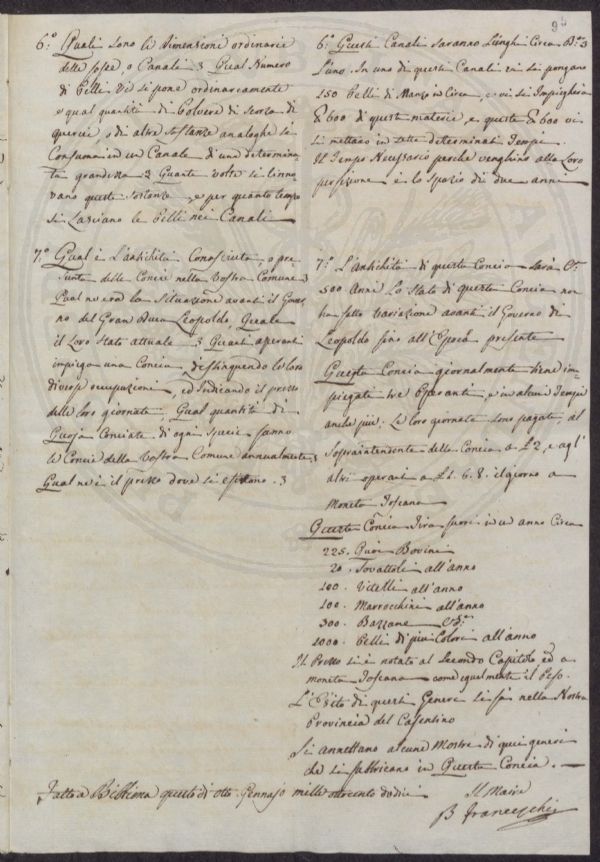 95
6.° Quali sono le dimensioni ordinarie
delle fosse, o Canali? Qual Numero
di Pelli vi si pone ordinariamente
e qual quantità di Polvere di scorza di
quercie, o di altre sostanze analoghe si
Consuma in un Canale d'una determina-
ta grandezza? Quante volte si rinno-
vano queste sostanze, e per quanto tempo
si Lasciano le Pelli nei Canali
7.° Qual è L'antichità Conosciuta, o pre-
sunta delle Concie nella Vostra Comune?
Qual ne era la Situazione avanti il Gover-
no del Gran Duca Leopoldo, Quale
il Loro Stato attuale? Quanti operanti
impiega una Concia, distinguendo le loro
diverse occupazioni, ed Indicando il prezzo
delle loro giornate, Qual quantità di
Quoja Conciate di ogni Specie fanno
le Concie della Vostra Comune annualmente,
Qual ne è il prezzo dove si esitano?
6.° Questi Canali saranno Lunghi Circa B.ª 3
L'uno. In uno di questi Canali vi si pongano
150 Pelli di Manzo in Circa, e vi si Impieghera
600 di queste materie, e queste 600 vi
si mettano in sette determinati Tempi.
Il Tempo Necessario perche venghino alla Loro
perfezione è lo spazio di due anni
7.° L'antichità di questa Concia sarà C.ª
500 Anni Lo Stato di questa Concia non
ha fatto variazione avanti il Governo di
Leopoldo fino all'Epoca presente
Questa Concia giornalmente tiene im-
piegati tre Operanti, e in alcuni Tempi
anche piu. Le loro giornate sono pagate al
Sopraintendente della Concia a £ 2, e agl'
altri operanti a £ 1. 6. 8. il giorno a
Moneta Toscana
Questa Concia Tira fuori in un anno Circa
225. Quoi Bovini
20. Tovattoli all'anno
100. Vitelli all'anno
100. Marrocchini all'anno
300. Bazzane
1000. Pelli di piu Colori all'anno
Il Prezzo si è notato al Secondo Capitolo ed a
moneta Toscana come egualmente il Peso.
L'Esito di questi Generi si fà nella Nostra
Provincia del Casentino
Si annettano alcune Mostre di quei generi
che si fabbricano in Questa Concia.
Fatto a Bibbiena questo dì otto Gennajo mille ottocento dodici
Il Maire
B Franceschi